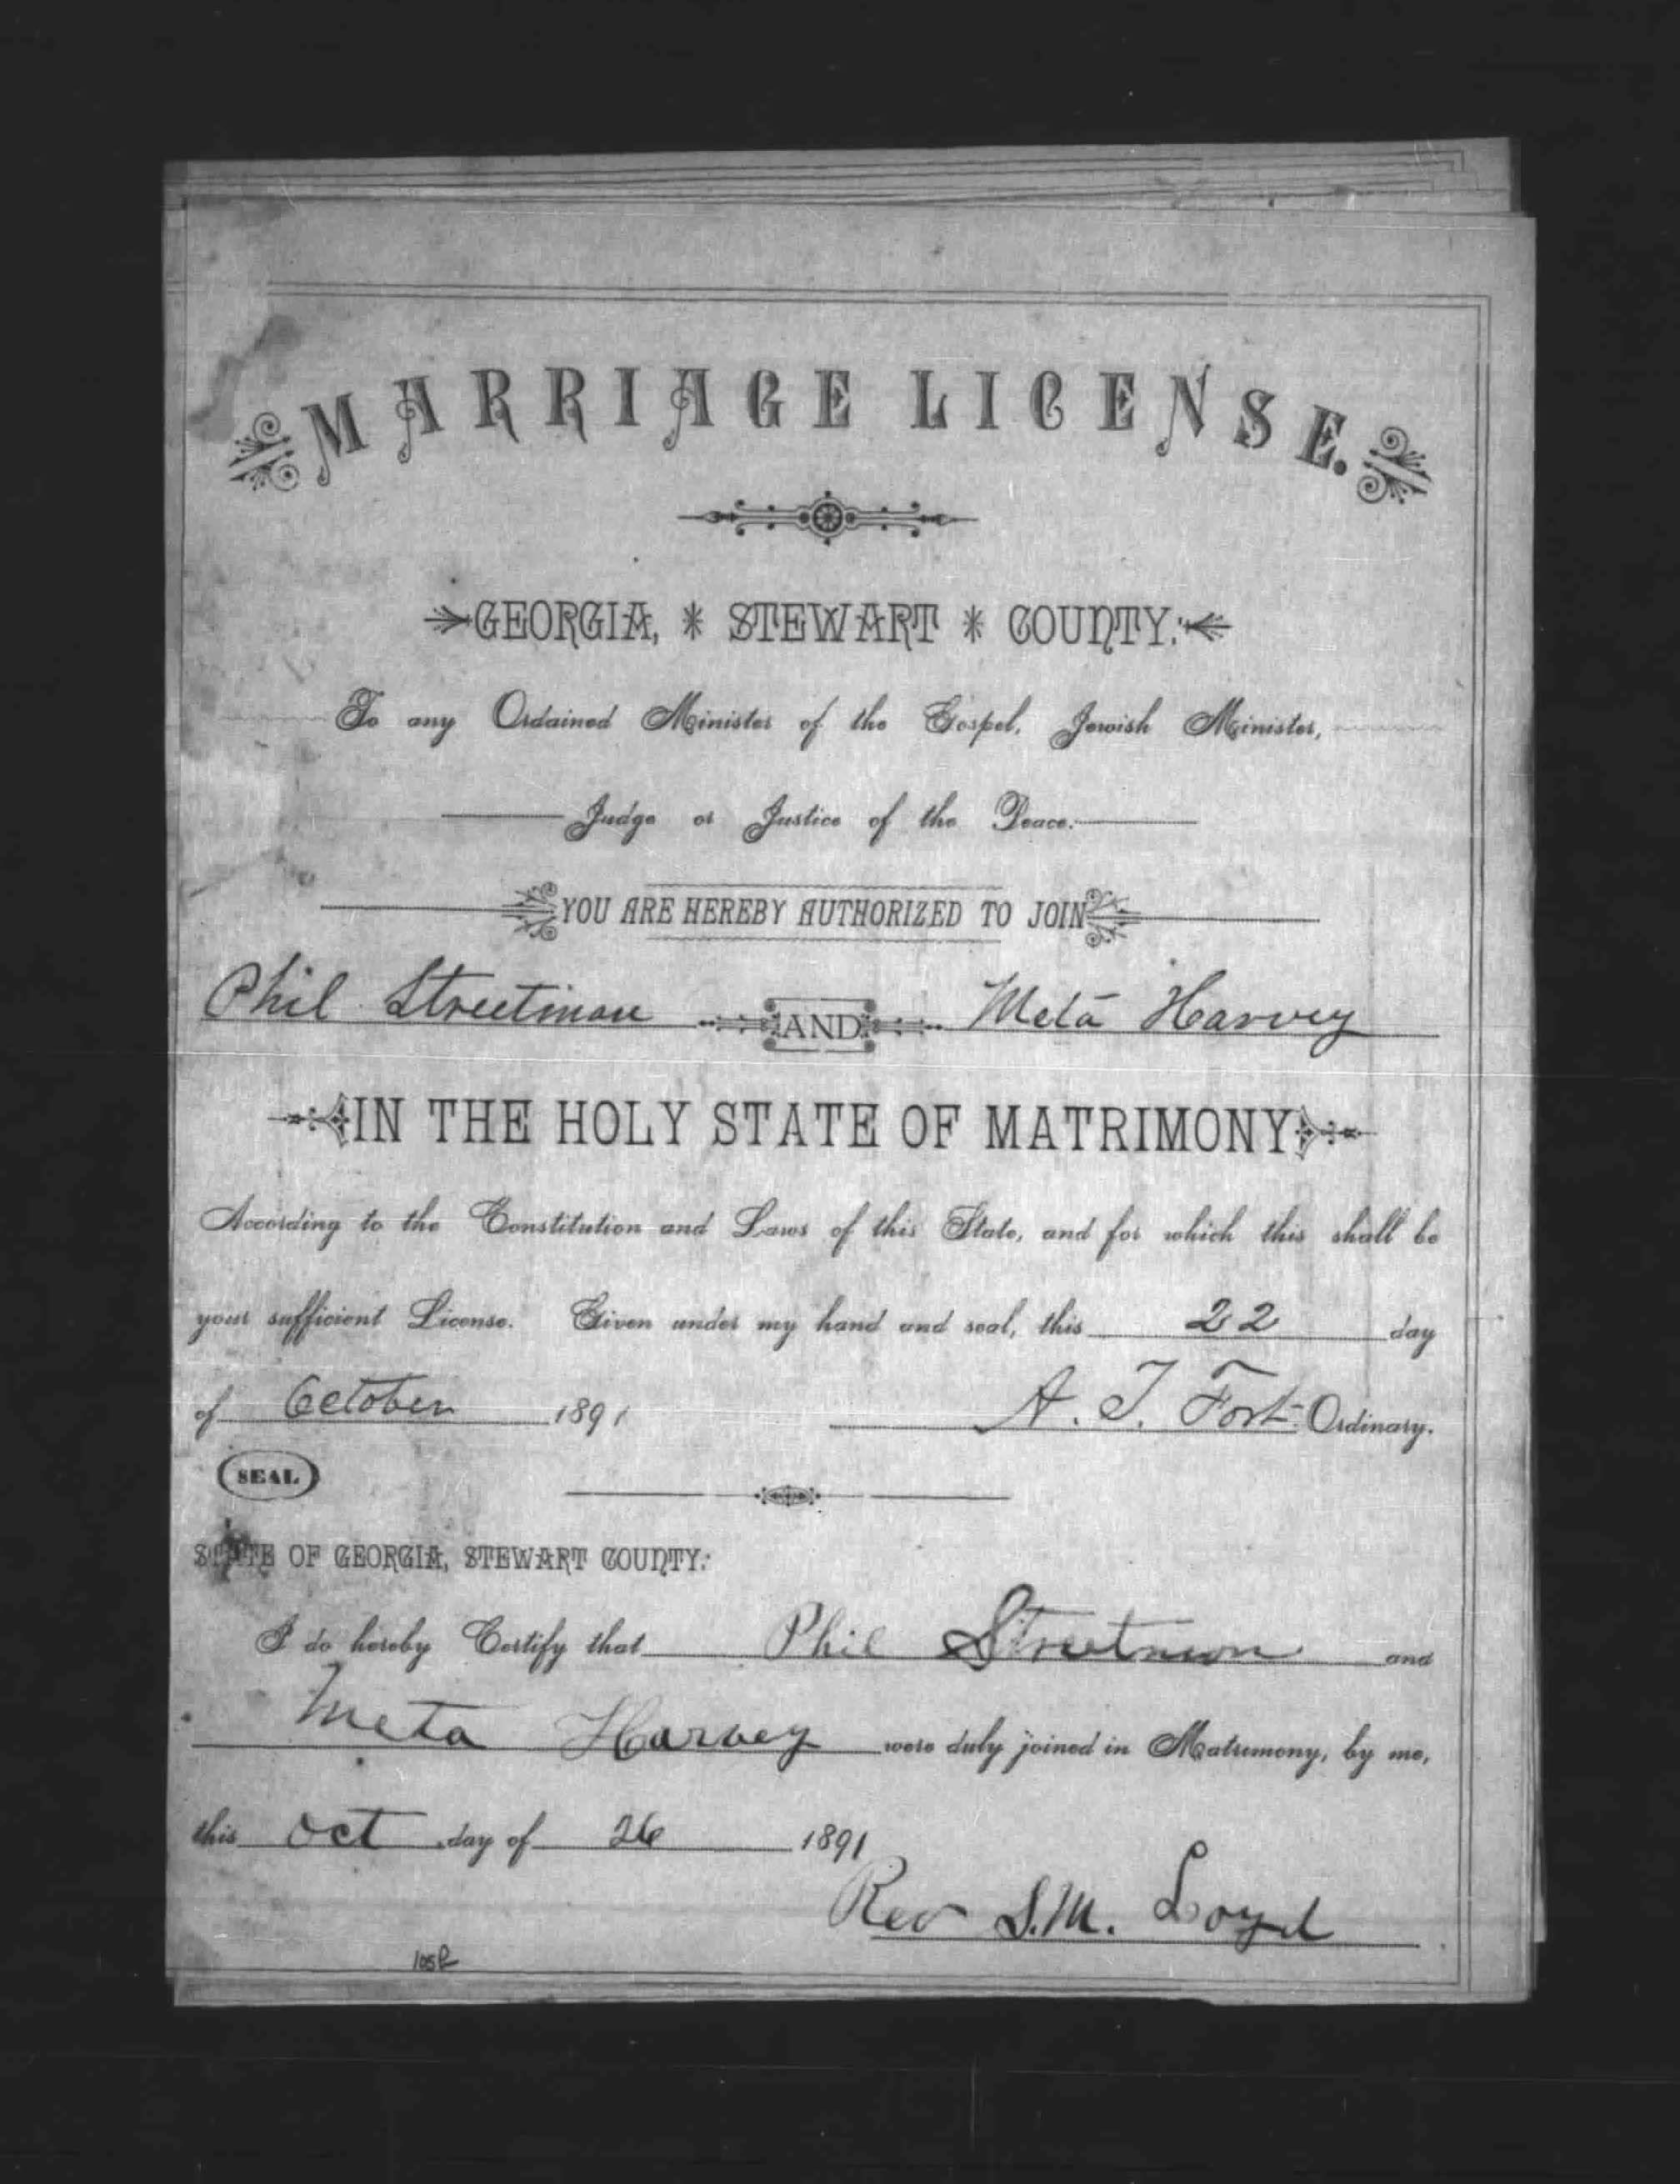 MARRIAGE LICENSE.
GEORGIA, * STEWART * COUNTY:
To any Ordained Minister of the Gospel, Jewish Minister,
Judge or Justice of the Peace:
YOU ARE HEREBY AUTHORIZED TO JOIN
Phil Streetman AND Meta Harvey
IN THE HOLY STATE OF MATRIMONY
According to the Constitution and Laws of this State, and for which this shall be
your sufficient License. Given under my hand and seal, this 22 day
of October 1891 A. T. Fort Ordinary.
SEAL
STATE OF GEORGIA, STEWART COUNTY:
I do hereby Certify that Phil Streetman and
Meta Harvey were duly joined in Matrimony, by me,
this Oct day of 26 1891
Rev S.M. Loyd